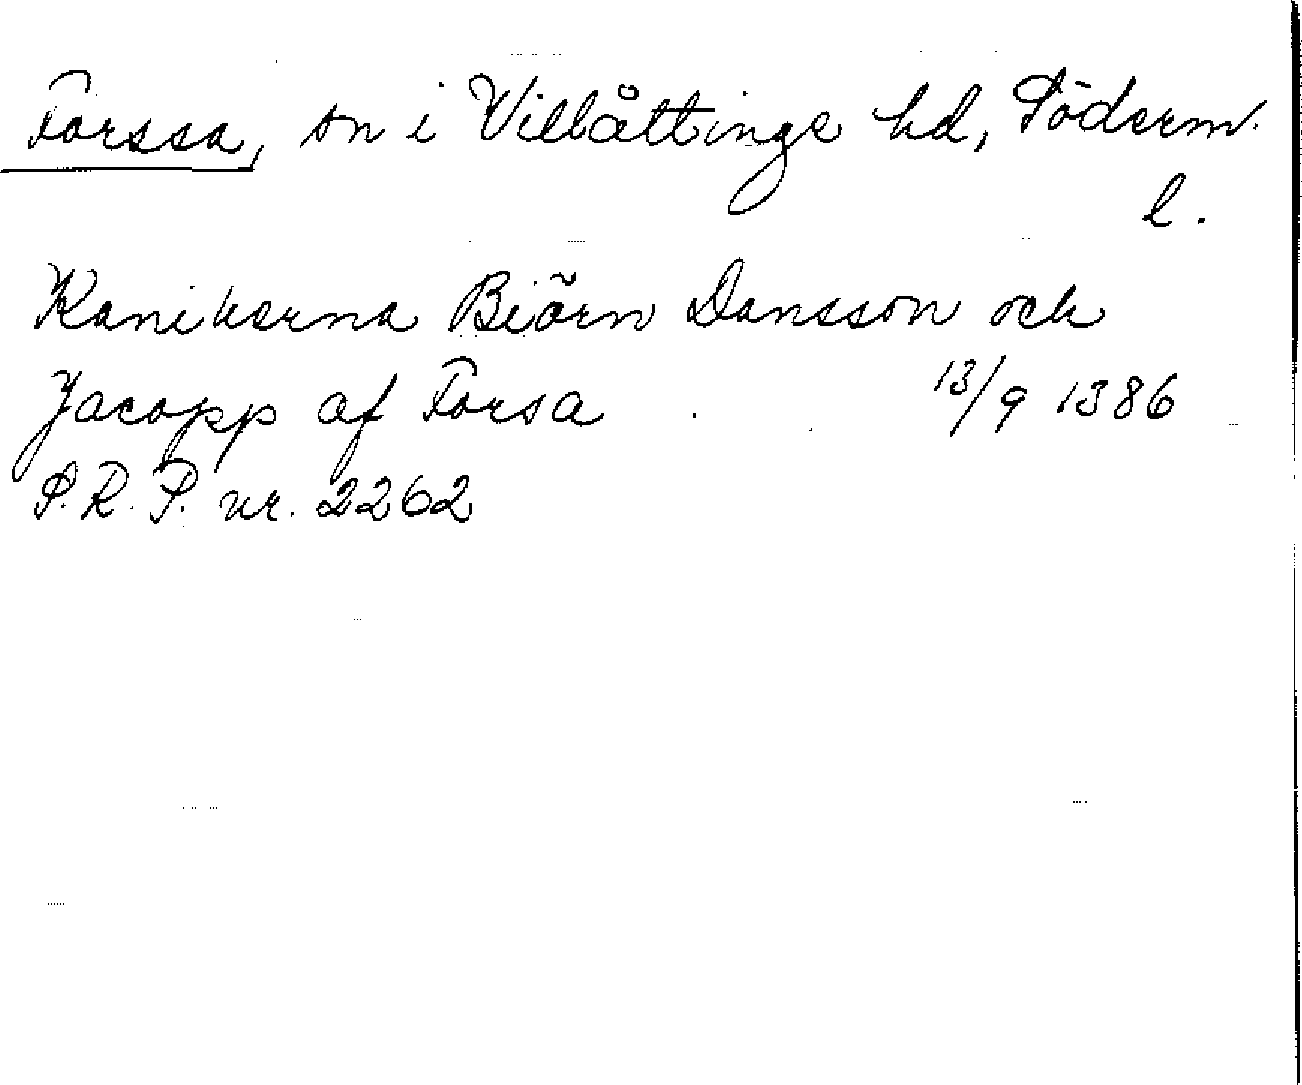 Forssa, sn i Villåttinge hd, Söderm.
l.
Kanikerna Biörn Dansson och
Jacopp af Forsa 13/9 1386
S.R.P. nr. 2262